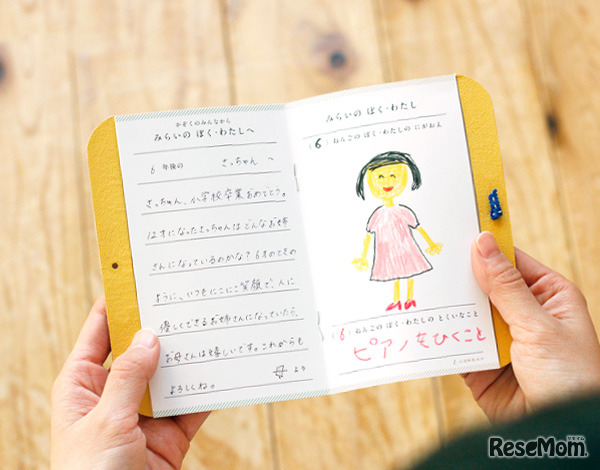 かぞくのみんなから
みらいの ぼく・わたしへ
6 年後の さっちゃん へ
さっちゃん、小学校卒業おめでとう。
12才になったさっちゃんはどんなお姉
さんになっているのかな？6才のときの
ように、いつもにこにこ笑顔で、人に
優しくできるお姉さんになっていたら、
お母さんは嬉しいです。これからも
よろしくね。 母 より
みらいの ぼく・わたし
(6)ねんごの ぼく・わたしの にがおえ
(6)ねんごの ぼく・わたしの とくいなこと
ピアノをひくこと
ReseMom